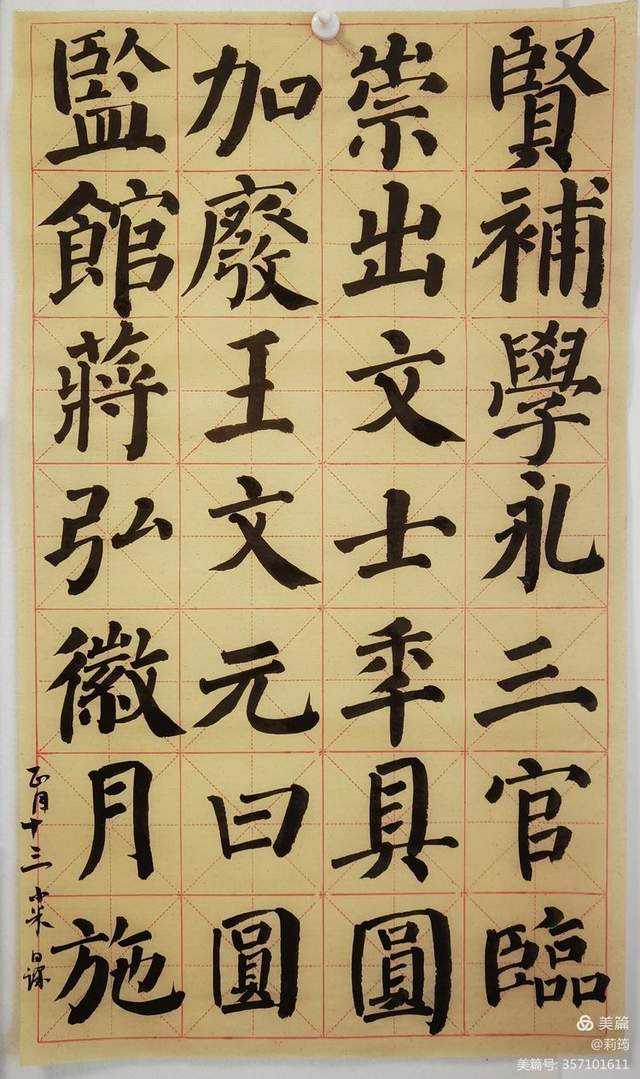 賢補學永三官臨
崇出文士年具圓
加廢王文元曰圓
監館蔣弘徽月施
正月十三 小米 日課
美篇
@莉筠
美篇号: 357101611